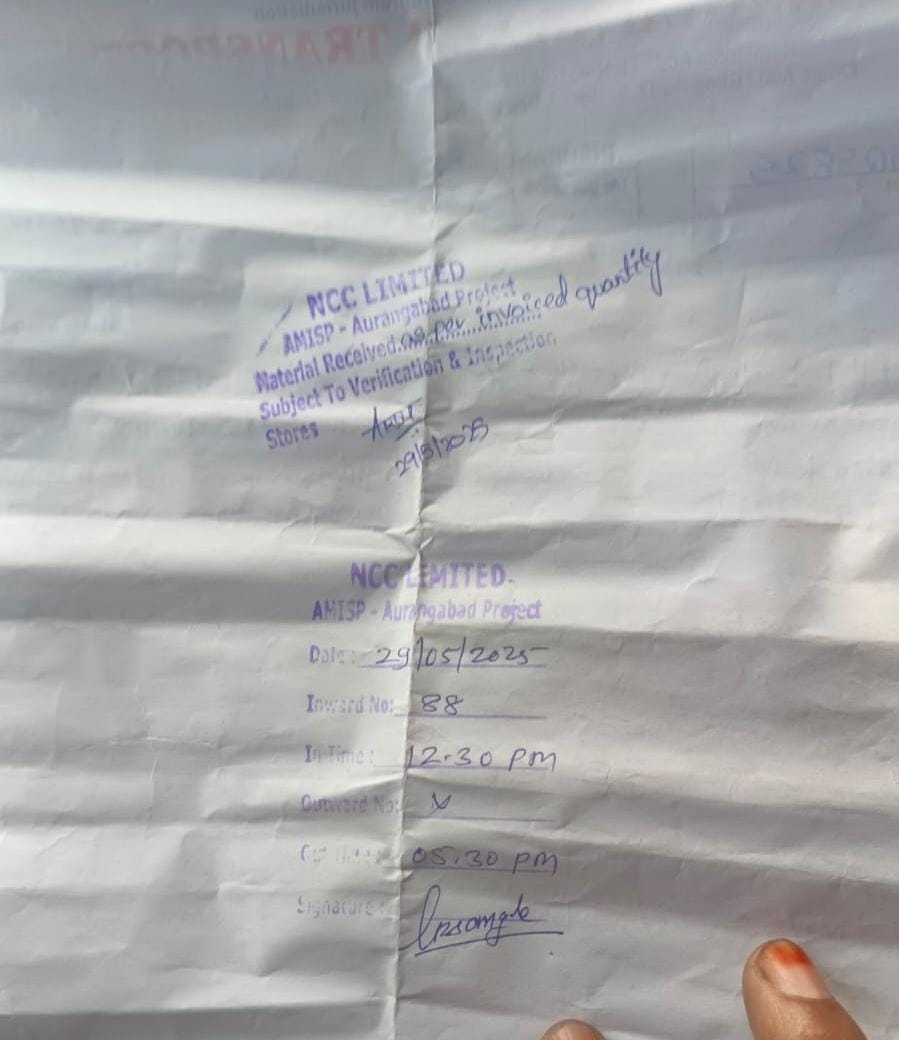 TRANSPORT
NCC LIMITED
AMISP - Aurangabad Project
Material Received as per invoiced quantity
Subject To Verification & Inspection
Stores
29/5/2025
NCC LIMITED.
AMISP - Aurangabad Project
Date: 29/05/2025
Inward No: 88
In Time: 12.30 pm
Outward No: x
Out Time: 05.30 pm
Signature: